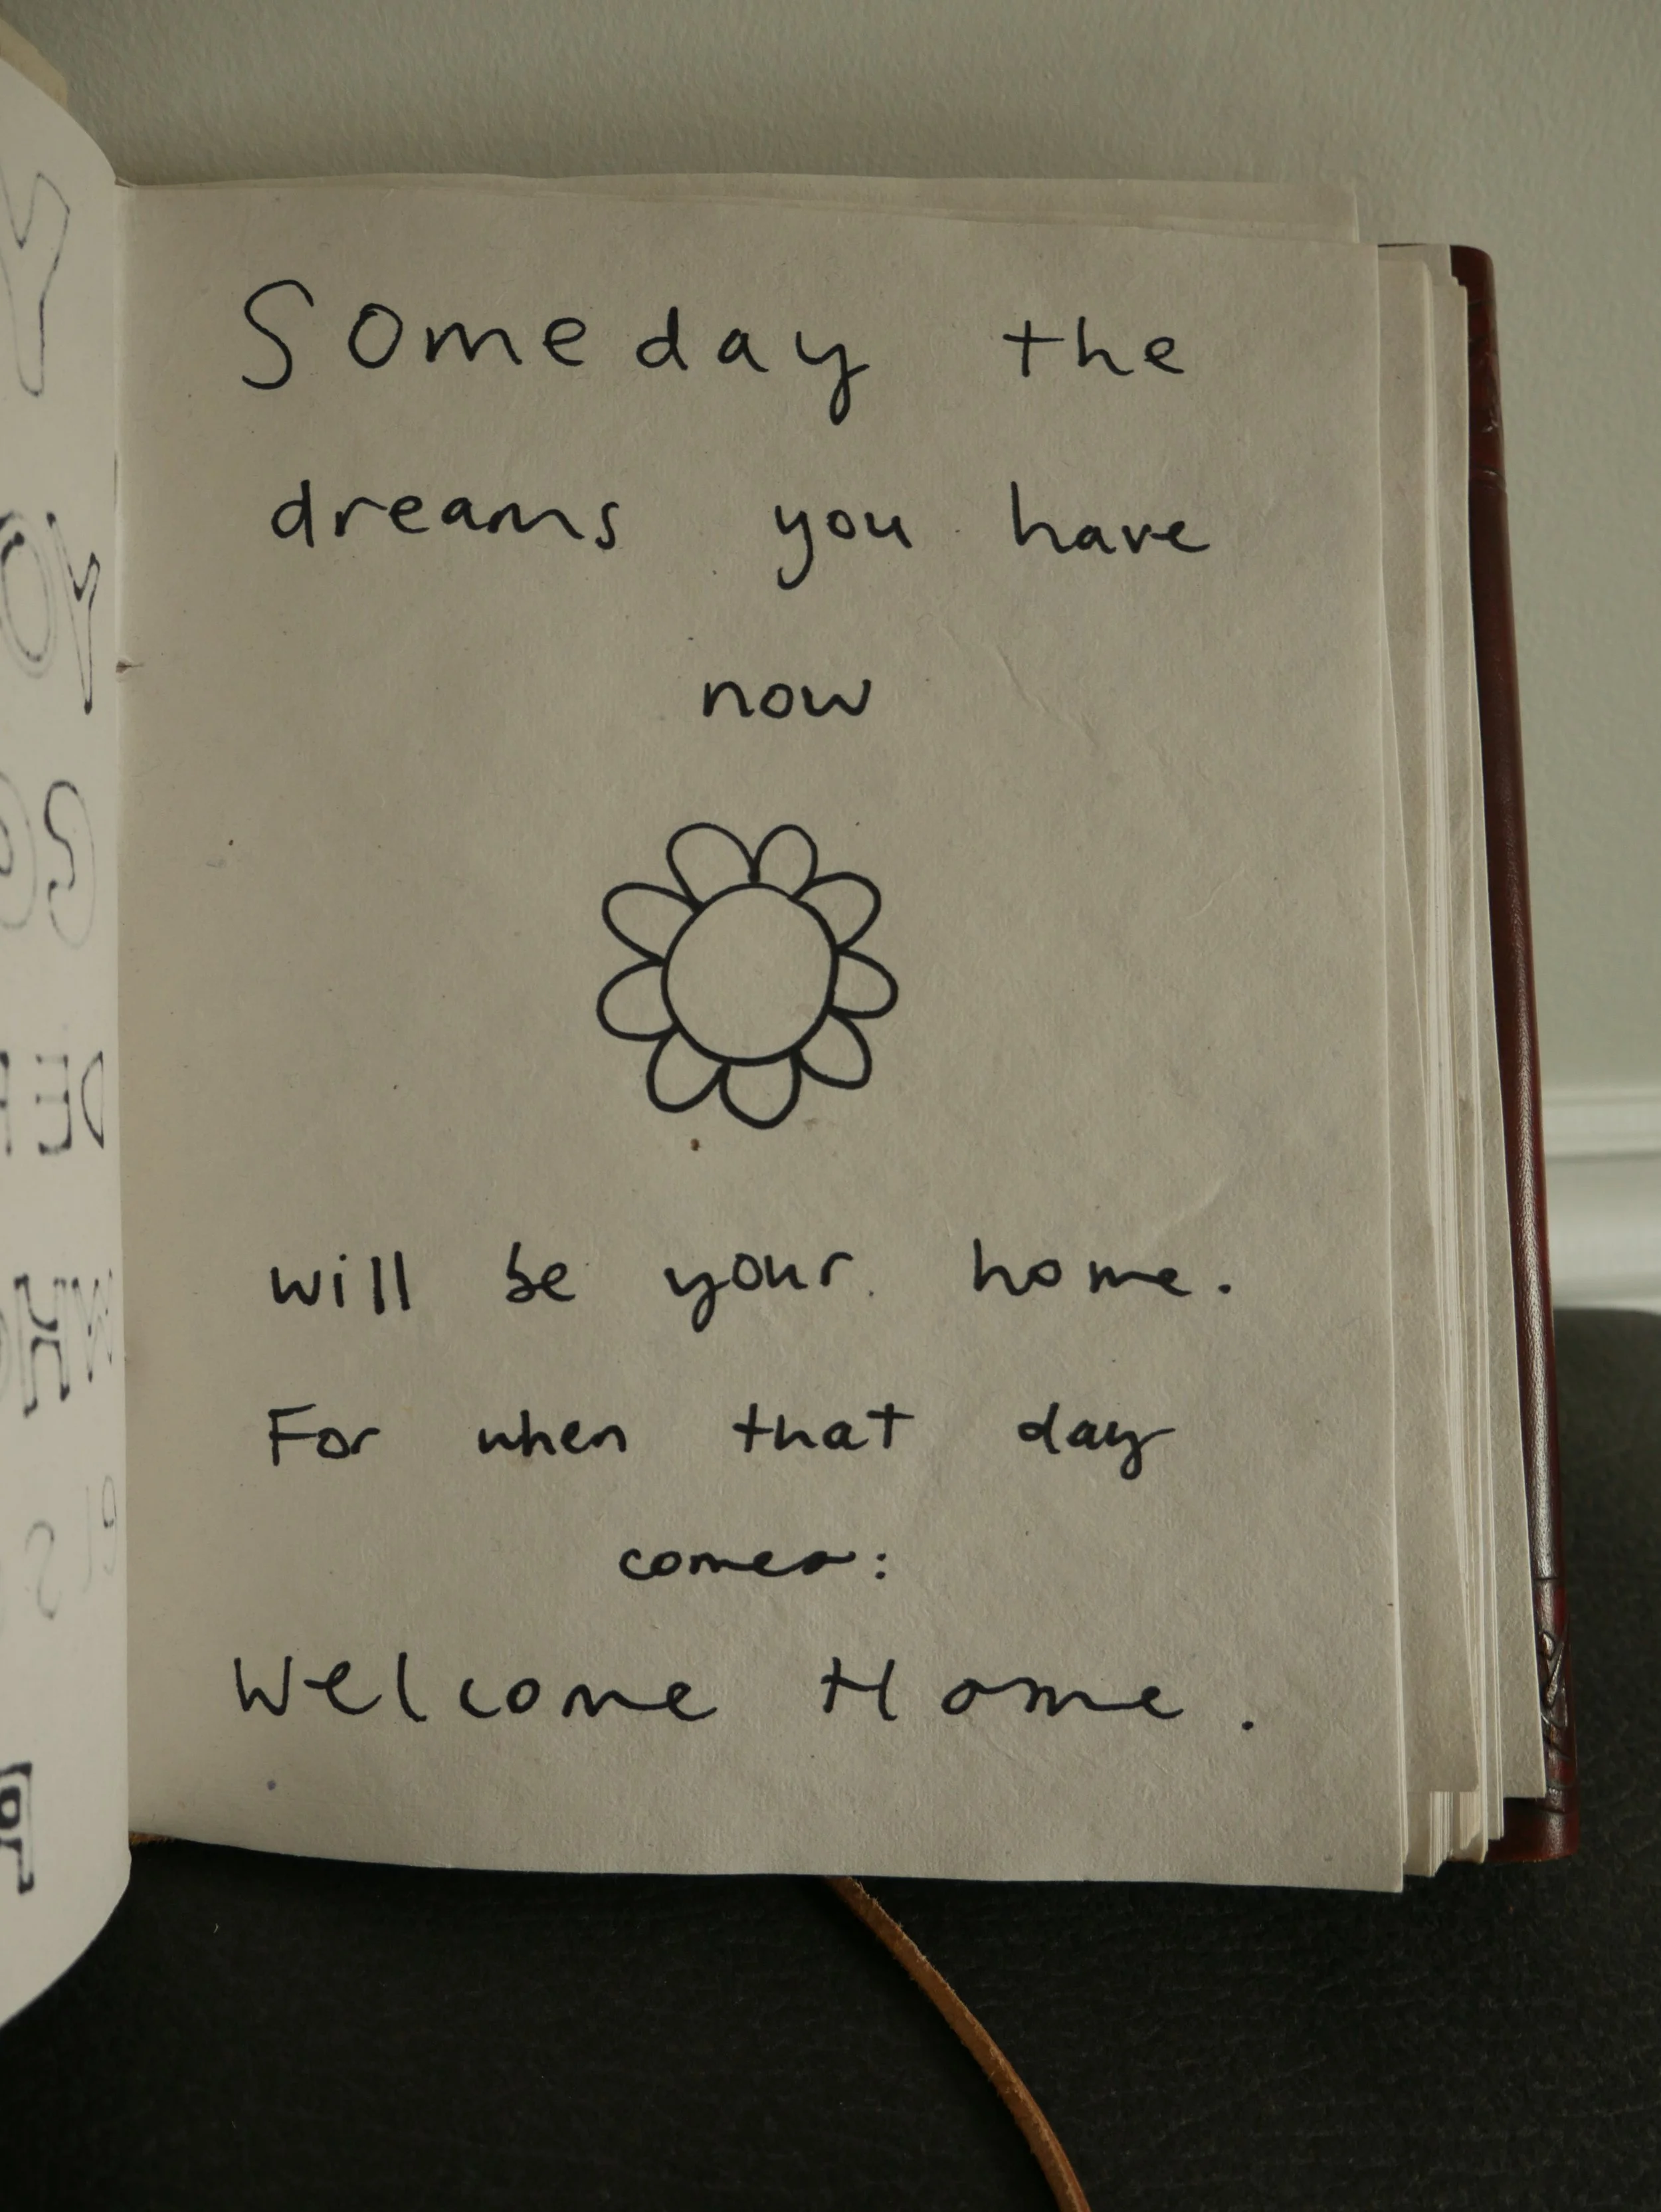 Someday the
dreams you have
now
will be your home.
For when that day
comes:
Welcome Home.